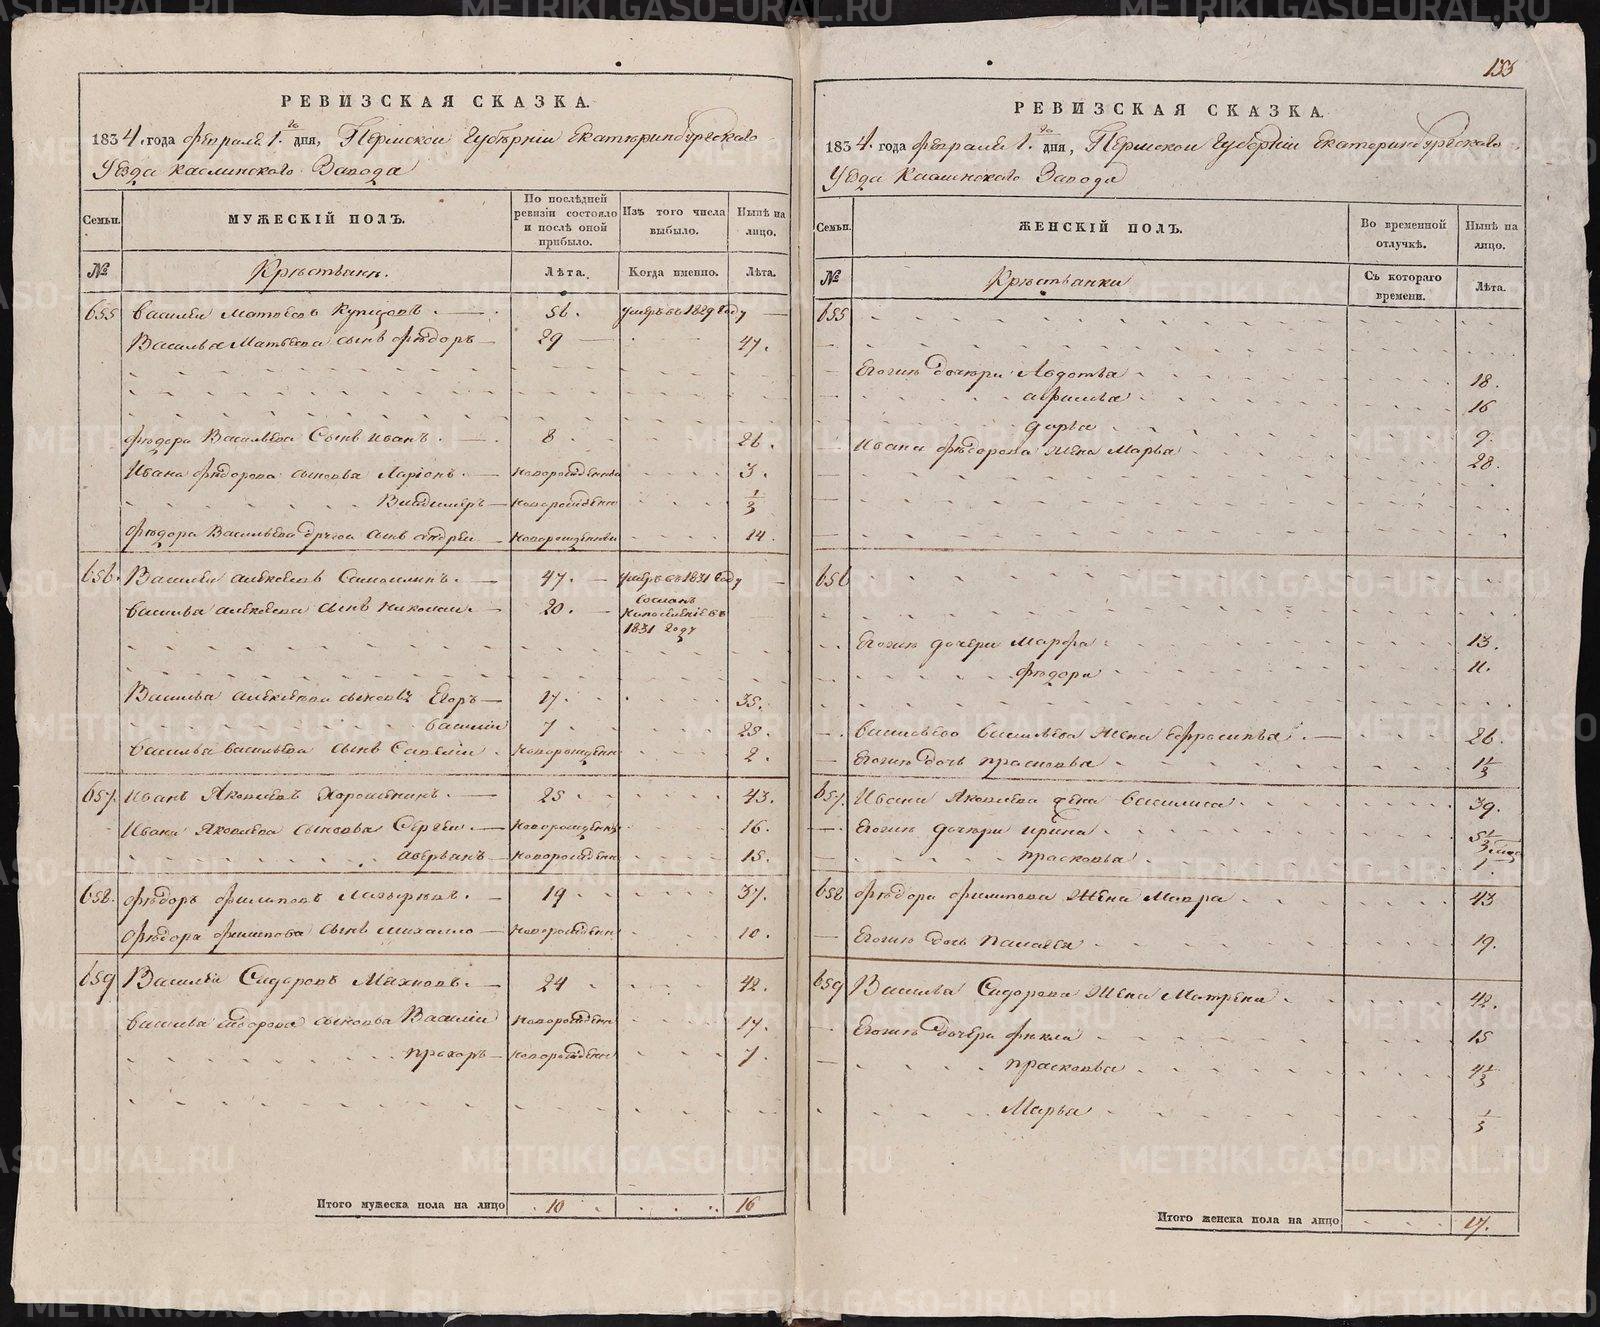 133
РЕВИЗСКАЯ СКАЗКА.
1834. года февраля 1. го дня, Пермской Губерніи Екатеринбургскаго
Уезда Каслинского Завода
Семьи.
МУЖЕСКІЙ ПОЛЪ.
По послѣдней ревизіи состояло и послѣ оной прибыло.
Изъ того числа выбыло.
Нынѣ на лицо.
№ Крѣстьянѣ. Лѣта. Когда именно. Лѣта.
655 Василеи Матвеевъ Купцовъ. 56. умеръ въ 1829 году
Василья Матвеева сынъ Фѣдоръ 29 47.
Фѣдора Васильева Сынъ Иванъ. 8 26.
Ивана Фѣдорова сыновья Ларіонъ. новорожденны 3.
Владимеръ новорожденн 1/3
Фѣдора Васильева другой сынъ Андреи новорожденныи 14.
656. Василеи Алексеевъ 47. умеръ въ 1831 году
Василья Алексеева сынъ Николаи. 20. сосланъ
на поселение въ
1831 году
Василья Алексеева сыновь Егоръ 17 35.
Василіи 7 25.
Василья Васильева сынъ Савелеи. новорожденн 2.
657. Иванъ Яковлевъ Хорошенинъ. 25 43.
Ивана Яковлева сыновья Сергеи. новорожденны 16.
Аверьянъ новорожденн 15.
658. Фѣдоръ Филиповъ 19 37.
Фѣдора Филипова сынъ Михаило новорожденн 10.
659 Василеи Сидоровъ Махновъ. 24 42.
Василья Сидорова сыновья Василіи новорожденн 17.
Прохоръ новорожденн 7.
Итого мужеска пола на лицо 10 16
РЕВИЗСКАЯ СКАЗКА.
1834. года февраля 1. го дня, Пермской Губерніи Екатеринбургскаго
Уезда Каслинскаго Завода
Семьи.
ЖЕНСКІЙ ПОЛЪ.
Во временной отлучкѣ.
Нынѣ на лицо.
№ Крѣстьянки Съ котораго времени. Лѣта.
655
Егожъ дочери Авдотья 18.
Афимья 16
Дарья 9.
Ивана Фѣдорова жена Марья 28.
656
Егожъ дочери Марфа 13.
Фѣдора 11.
Василья Васильева Жена Ефросинья. 26.
Егожъ дочь Прасковья 1 1/3
657. Ивана Яковлева жена Василиса 39.
Егожъ дочери Ирина 5 1/2
Прасковья 1.
658 Фѣдора Филипова Жена Мавра 43
Егожъ дочь Палагея 19.
659 Василья Сидорова Жена Матрена 42.
Егожъ дочери Фѣкла 15
Прасковья 4 1/3
Марья 1/3
Итого женска пола на лицо 17.
METRIKI.GASO-URAL.RU